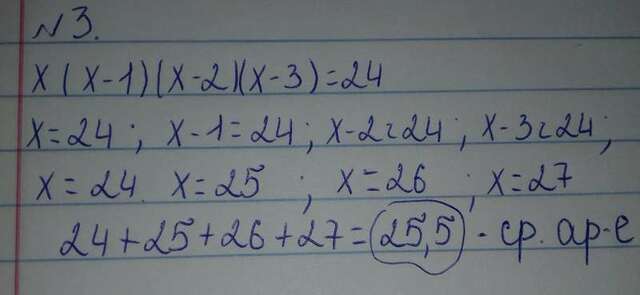 №3.
x(x-1)(x-2)(x-3)=24
x=24; x-1=24; x-2=24; x-3=24;
x=24 x=25; x=26; x=27
24+25+26+27=25,5 - ср. ар-е